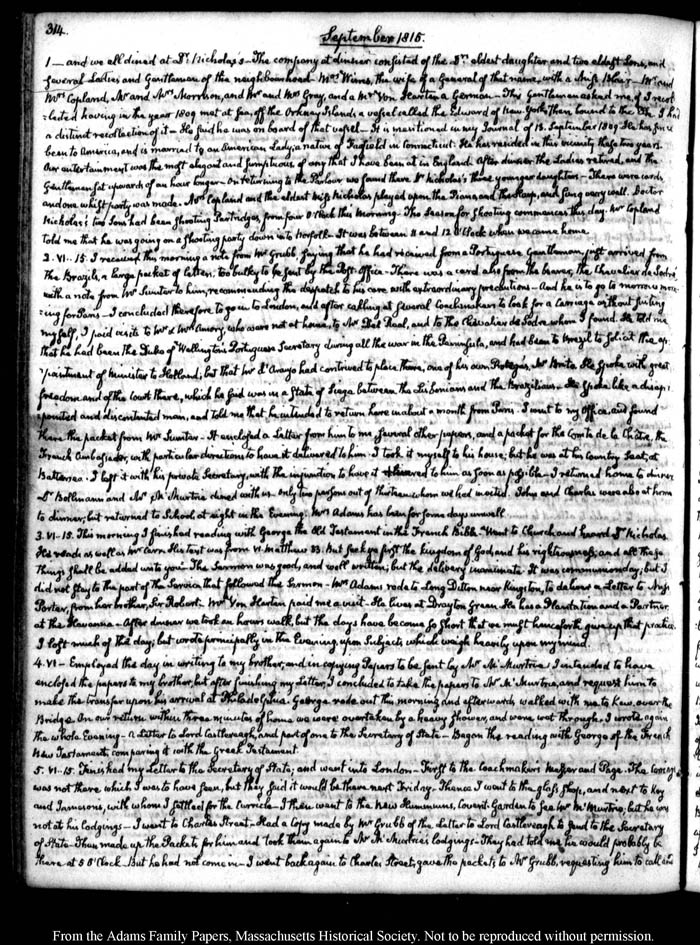 314.
September 1815.
1 — and we all dined at Dr. Nicholas's — The company at dinner consisted of the Dr's eldest daughter and two eldest Sons, and
several Ladies and Gentlemen of the neighbourhood — Mrs the wife of a General of that name, with a Miss Blair — Mr and
Mrs Copland, Mr and Mrs Morrison, and Mr and Mrs Gray, and a Mr Von Harten a German — This Gentleman asked me if I recol-
-lected having in the year 1809 met at Sea, off the Orkney Islands a vessel called the Edward of New York, then bound to the I had
a distinct recollection of it — He said he was on board of that vessel — It is mentioned in my Journal of 13. September 1809. He has since
been to America, and is married to an American Lady, a native of in Connecticut. He has resided in this vicinity these two years.
Our entertainment was the most elegant and sumptuous of any that I have been at in England. After dinner the Ladies retired, and the
Gentlemen sat upwards of an hour longer — On returning to the Parlour we found there Dr Nicholas's three younger daughters — There were cards
and one whist party was made. Mrs Copland and the eldest Miss Nicholas played upon the Piano and the Harp, and sang very well. Doctor
Nicholas's two Sons had been shooting Partridges, from four O'Clock this Morning. The Season for shooting commences this day. Mr Copland
told me that he was going on a shooting party down into Norfolk — It was between 11 and 12 O'Clock when we came home.
2. VI.. 15. I received this morning a note from Mr Grubb, saying that he had received from a Portuguese Gentleman just arrived from
The Brazils, a large packet of Letters, too bulky to be sent by the Post Office — There was a card also from the bearer, the Chevalier de Sodré
with a note from Mr Sumter to him, recommending the despatch to his care with extraordinary precautions — And he is to go to morrow morn-
-ing for Paris — I concluded therefore to go in to London, and after calling at several Coachmakers to look for a Carriage without suiting
myself, I paid visits to Mr & Mrs Amory, who were not at home, to Mr Del Real, and to the Chevalier de Sodre whom I found. He told me
that he had been the Duke of Wellington's Portuguese Secretary during all the war in the Peninsula, and had been to Brazil to solicit the ap-
-pointment of Minister to Holland; but that Mr d'Araujo had contrived to place there, one of his own Protegés, Mr Brito. He spoke with great
freedom of the Court there, which he said was in a State of Siege between the Lisbonians and the Brazilians. He spoke like a disap-
-pointed and discontented man, and told me that he intended to return here in about a month from Paris. I went to my Office, and found
there the packet from Mr Sumter — It enclosed a Letter from him to me, several other papers, and a packet for the Comte de la Châtre, the
French Ambassador, with particular directions to have it delivered to him. I took it myself to his house; but he was at his Country Seat, at
Battersea. I left it with his private Secretary, with the injunction to have it delivered to him as soon as possible — I returned home to dinner
Dr Bollmann and Mr McMurtrie dined with us. Only two persons out of thirteen whom we had invited. John and Charles were also at home
to dinner, but returned to School at night in the Evening. Mrs Adams has been for some days unwell.
3. VI. 15. This morning I finished reading with George the Old Testament in the French Bible. Went to Church and heard Dr Nicholas.
He reads as well as Mr Carr. His text was from VI. Matthew 33. But seek ye first the kingdom of God, and his righteousness; and all these
things shall be added unto you. The Sermon was good, and well written; but the delivery inanimate. It was communion day; but I
did not stay to the part of the Service that followed the Sermon — Mrs Adams rode to Long Ditton near Kingston, to deliver a Letter to Miss
Porter, from her brother, Sir Robert. Mr Von Harten paid me a visit. He lives at Drayton Green. He has a Plantation and a Partner
at the Havanna — After dinner we took an hour's walk, but the days have become so short that we must henceforth give up that practice.
I lost much of the day; but wrote principally in the Evening upon Subjects which weigh heavily upon my mind.
4. VI — Employed the day in writing to my brother, and in copying Papers to be sent by Mr McMurtrie. I intended to have
enclosed the papers to my brother, but after finishing my Letter, I concluded to take the papers to Mr McMurtrie, and request him to
make the transfer upon his arrival at Philadelphia. George rode out this morning and afterwards walked with me to Kew, over the
Bridge. On our return within three minutes of home we were overtaken by a heavy shower, and were wet through. I wrote again
the whole Evening — a Letter to Lord Castlereagh, and part of one to the Secretary of State — Began the reading with George of the French
New Testament, comparing it with the Greek Testament.
5. VI. 15. Finished my Letter to the Secretary of State; and went into London — First to the Coachmakers Messer and Page. The
was not there, which I was to have seen, but they said it would be there next Friday. Thence I went to the glass Shop, and next to Key
and with whom I settled for the Curricle — I then went to the New Hummums, Covent-Garden to see Mr McMurtrie; but he was
not at his lodgings — I went to Charles Street — Had a Copy made by Mr Grubb of the Letter to Lord Castlereagh to send to the Secretary
of State. Then made up the Packets for him and took them again to Mr McMurtrie's lodgings — They had told me he would probably be
there at 5 O'Clock. But he had not come in — I went back again to Charles Street, gave the packets to Mr Grubb, requesting him to call and
From the Adams Family Papers, Massachusetts Historical Society. Not to be reproduced without permission.